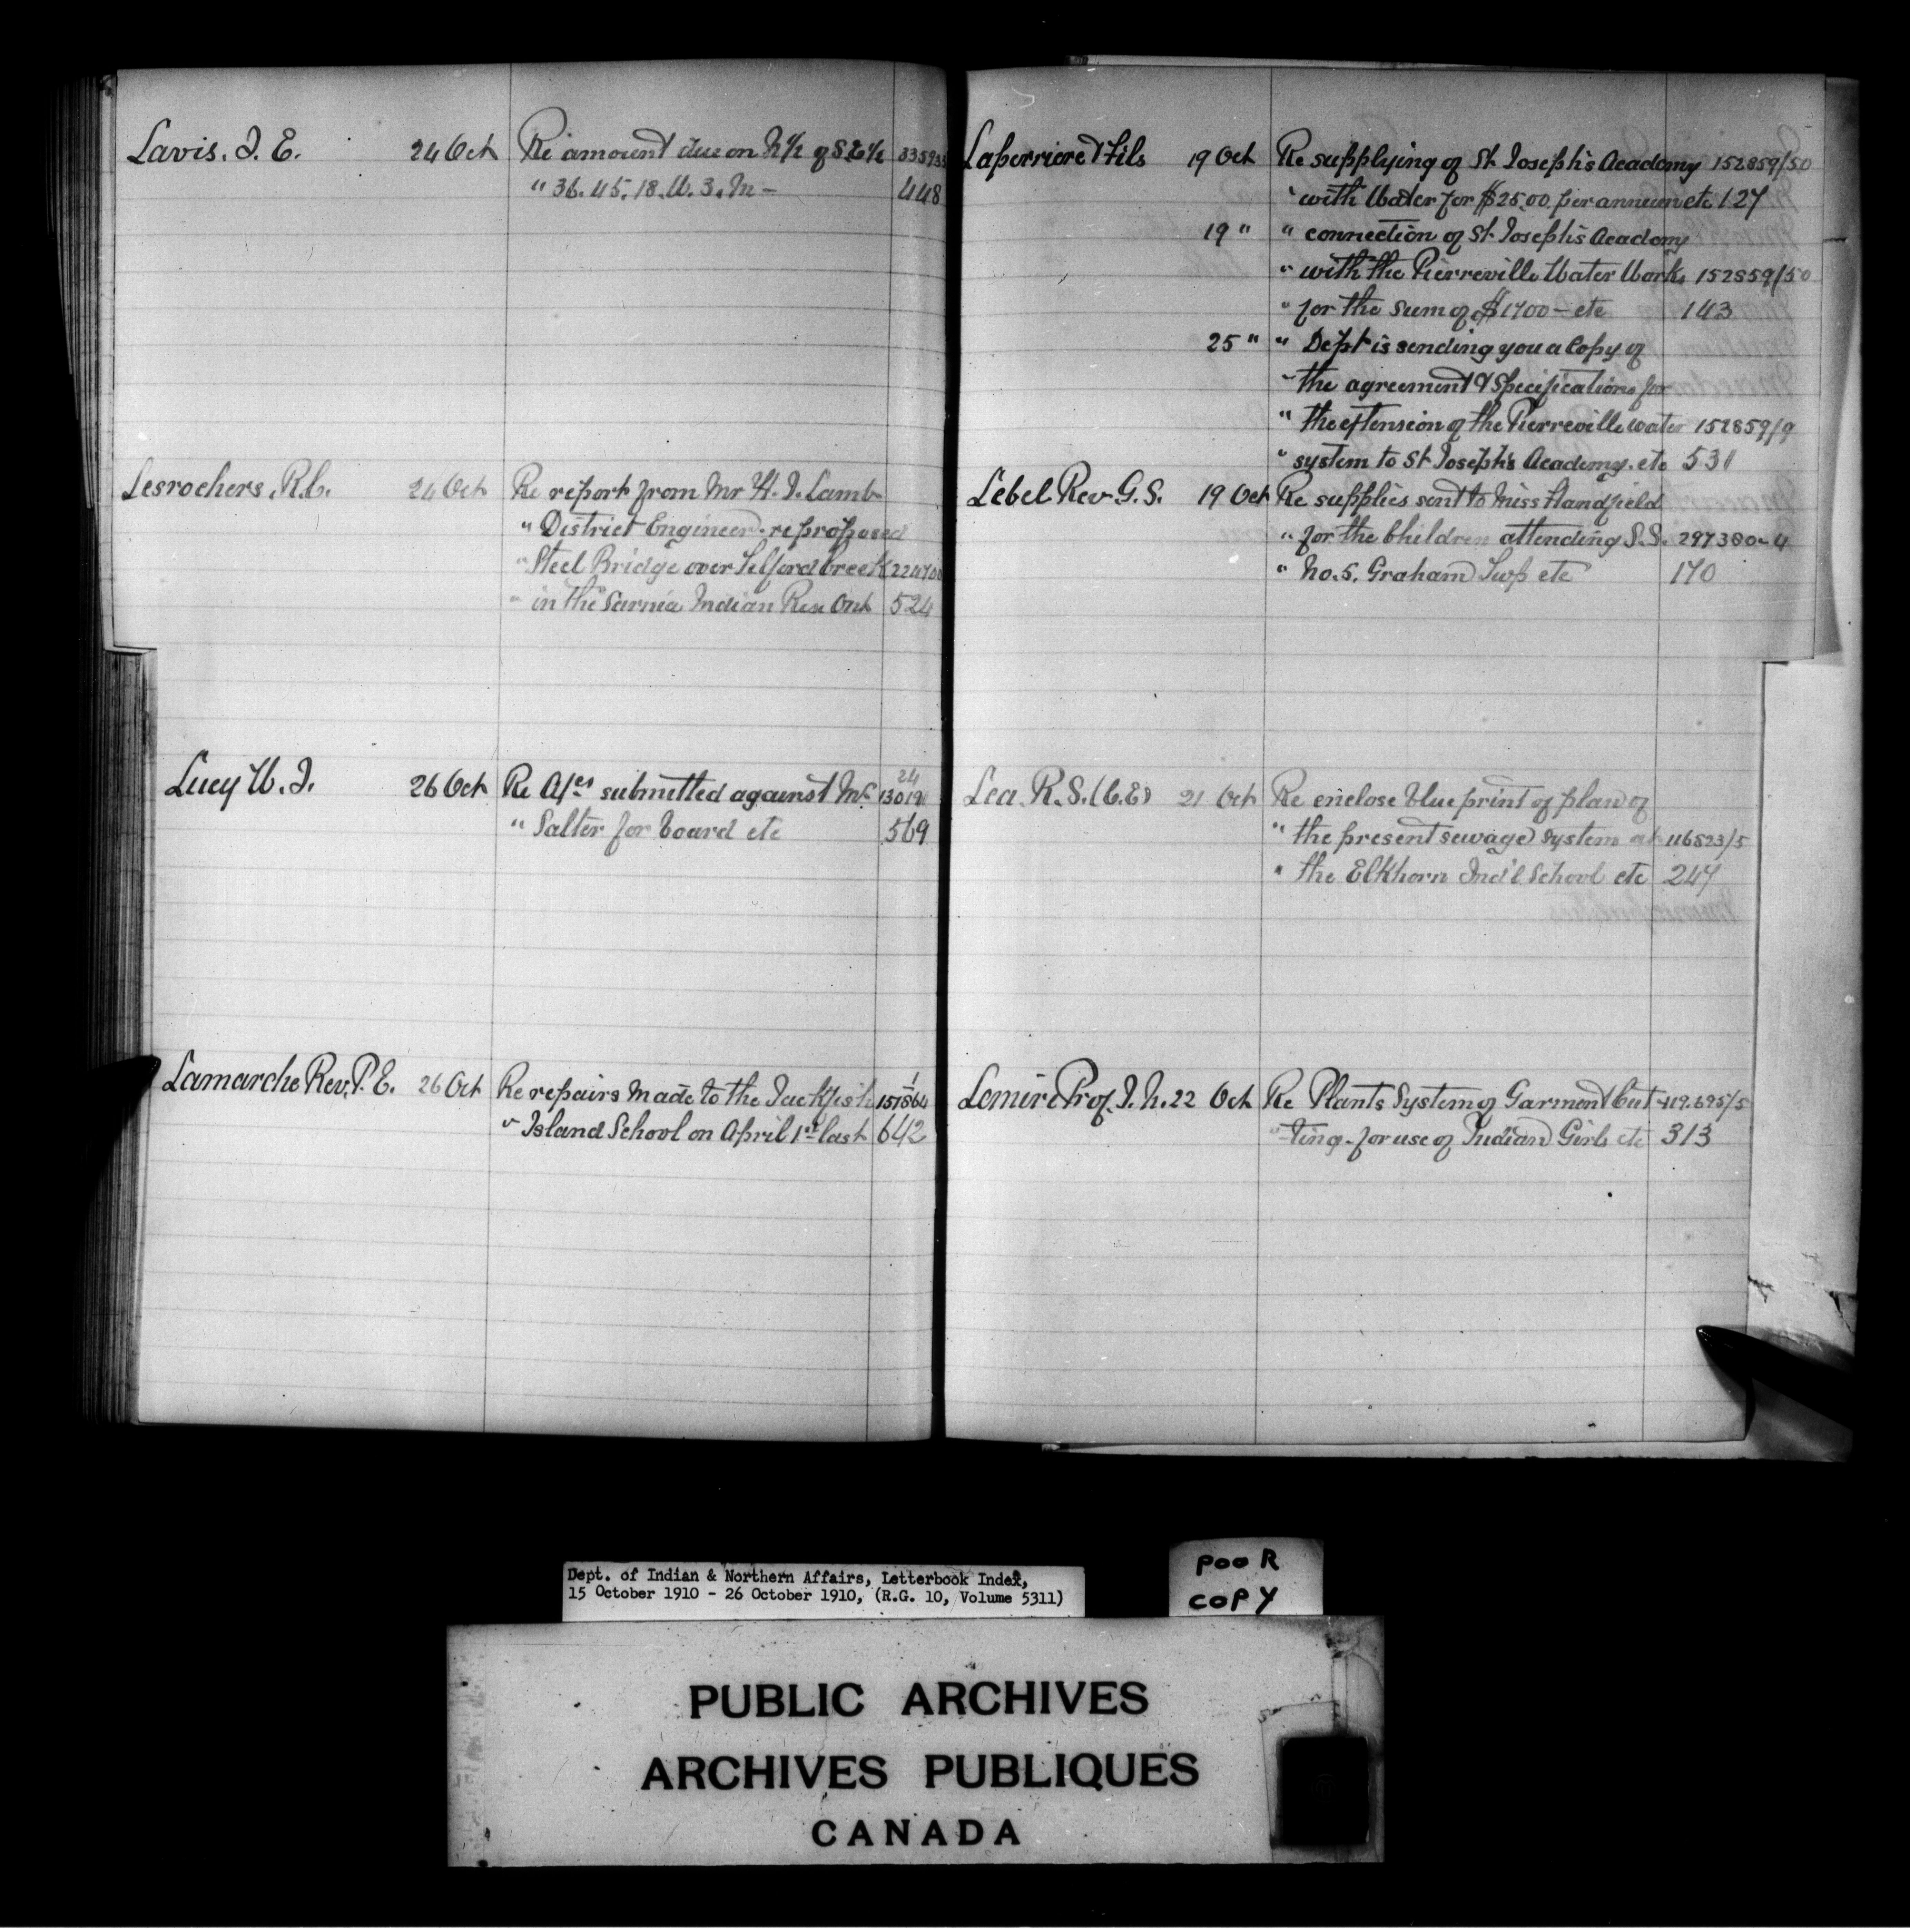 Lavis. J. E. 24 Oct Re amount due on N½ of S.E¼ 335933
" 36. 45. 18. W. 3. M - 448
Lesrochers, R.C. 24 Oct Re report from Mr H. J. Lamb
" District Engineer. re proposed
" Steel Bridge over Telford Creek 224700
" in the Sarnia Indian Res Ont 524
Lucy W. J. 26 Oct Re A/cs submitted against Mr 24 13019
" Salter for board etc 569
Lamarche Rev. P. E. 26 Oct Re repairs made to the Jackfish 157564/1
" Island School on April 1st last 642
Laferriere & Fils 19 Oct Re supplying of St Joseph's Academy 152859/50
" with Water for $25.00 per annum etc 127
19 " " connection of St Joseph's Academy
" with the Pierreville Water Works 152859/50
" for the sum of $1700 - etc 143
25 " " Dept is sending you a Copy of
" the agreement & specifications for
" the extension of the Pierreville water 152859/9
" system to St Joseph's Academy. etc 531
Lebel Rev. G. S. 19 Oct Re supplies sent to Miss Handfield
" for the Children attending S.S. 297380-4
" No. 5. Graham Twp etc 170
Lea. R. S. (C.E) 21 Oct Re enclose blue print of plan of
" the present sewage system at 116823/5
" the Elkhorn Ind'l School etc 247
Lemire Prof. J. N. 22 Oct Re Plants System of Garment Cut- 119.695/5
" -ting - for use of Indian Girls etc 313
Dept. of Indian & Northern Affairs, Letterbook Index,
15 October 1910 - 26 October 1910, (R.G. 10, Volume 5311)
POOR
COPY
PUBLIC ARCHIVES
ARCHIVES PUBLIQUES
CANADA